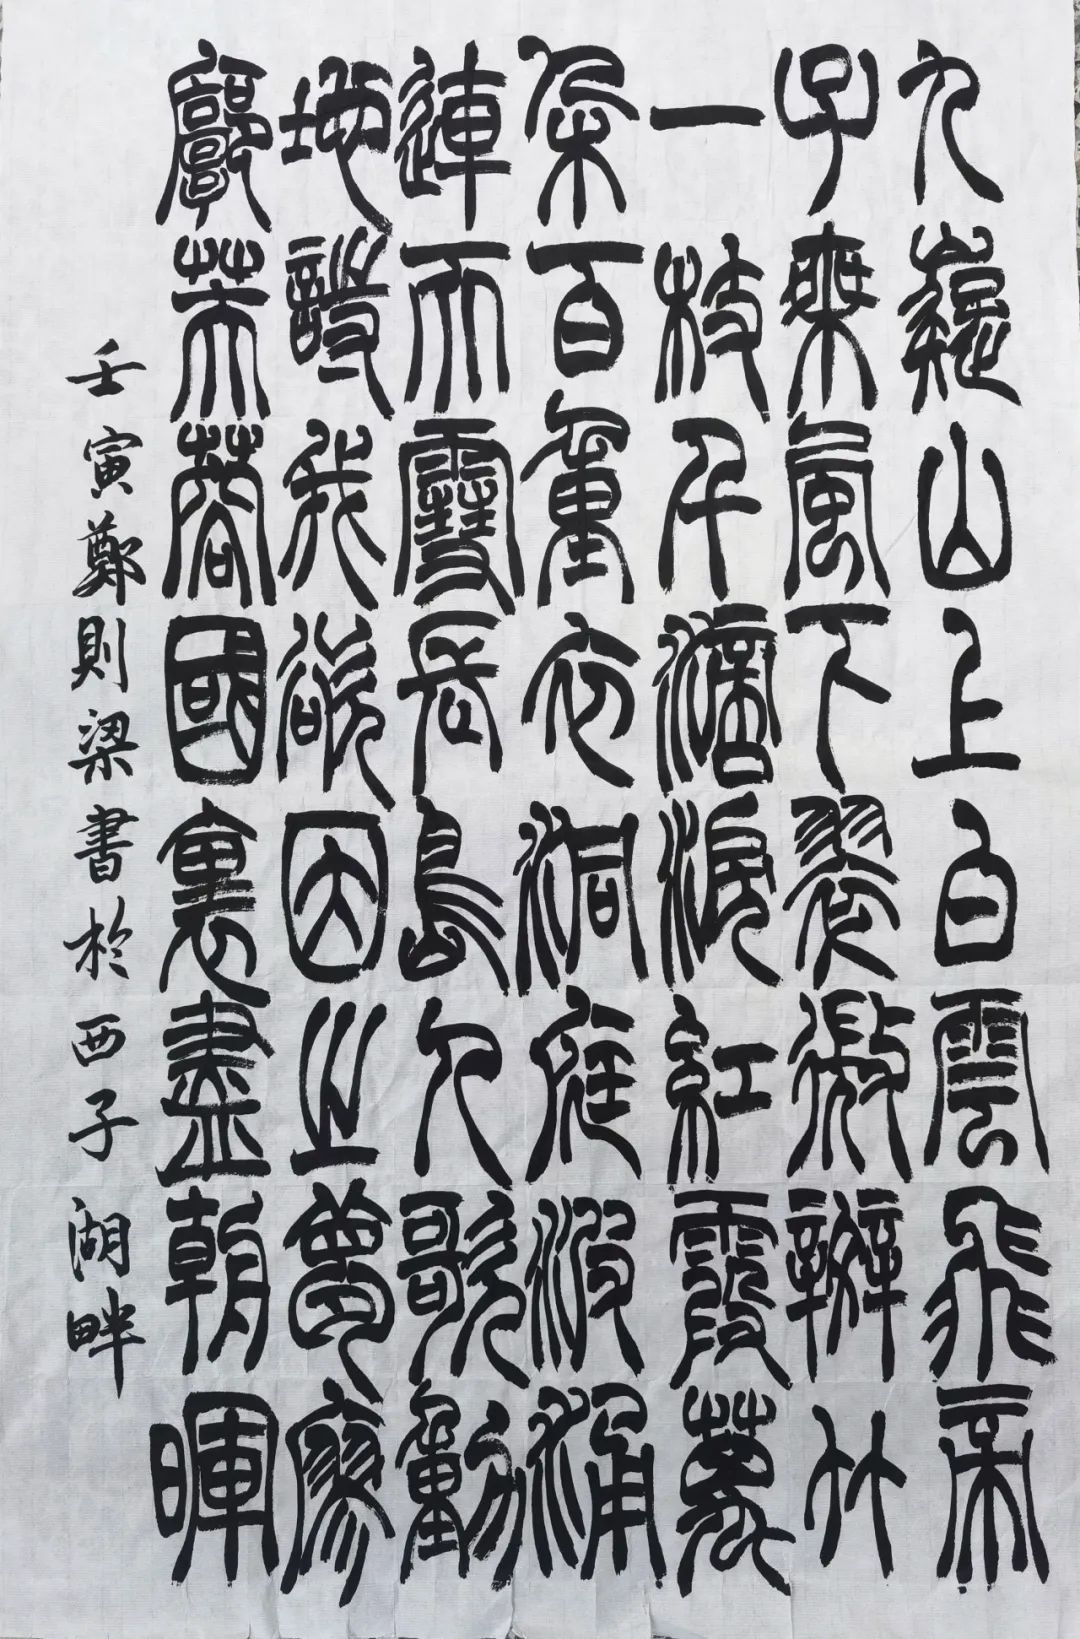 九嶷山上白雲飛帝
子乘風下翠微辬竹
一枝千滴淚紅霞萬
朵百重衣洞庭波涌
連天雪長島人歌動
地詩我欲因之夢寥
廓芙蓉國裏盡朝暉
壬寅鄭則梁書於西子湖畔